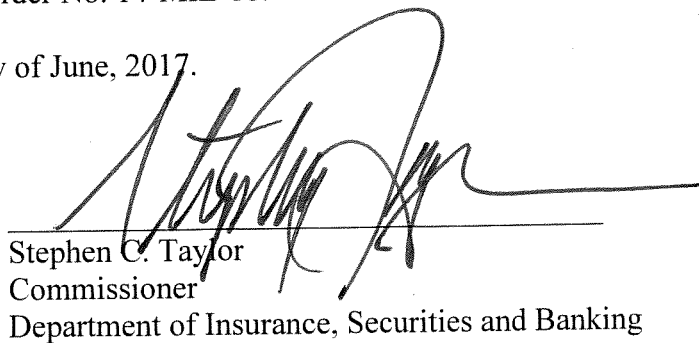 No.
y of June, 2017.
Stephen C. Taylor
Commissioner
Department of Insurance, Securities and Banking